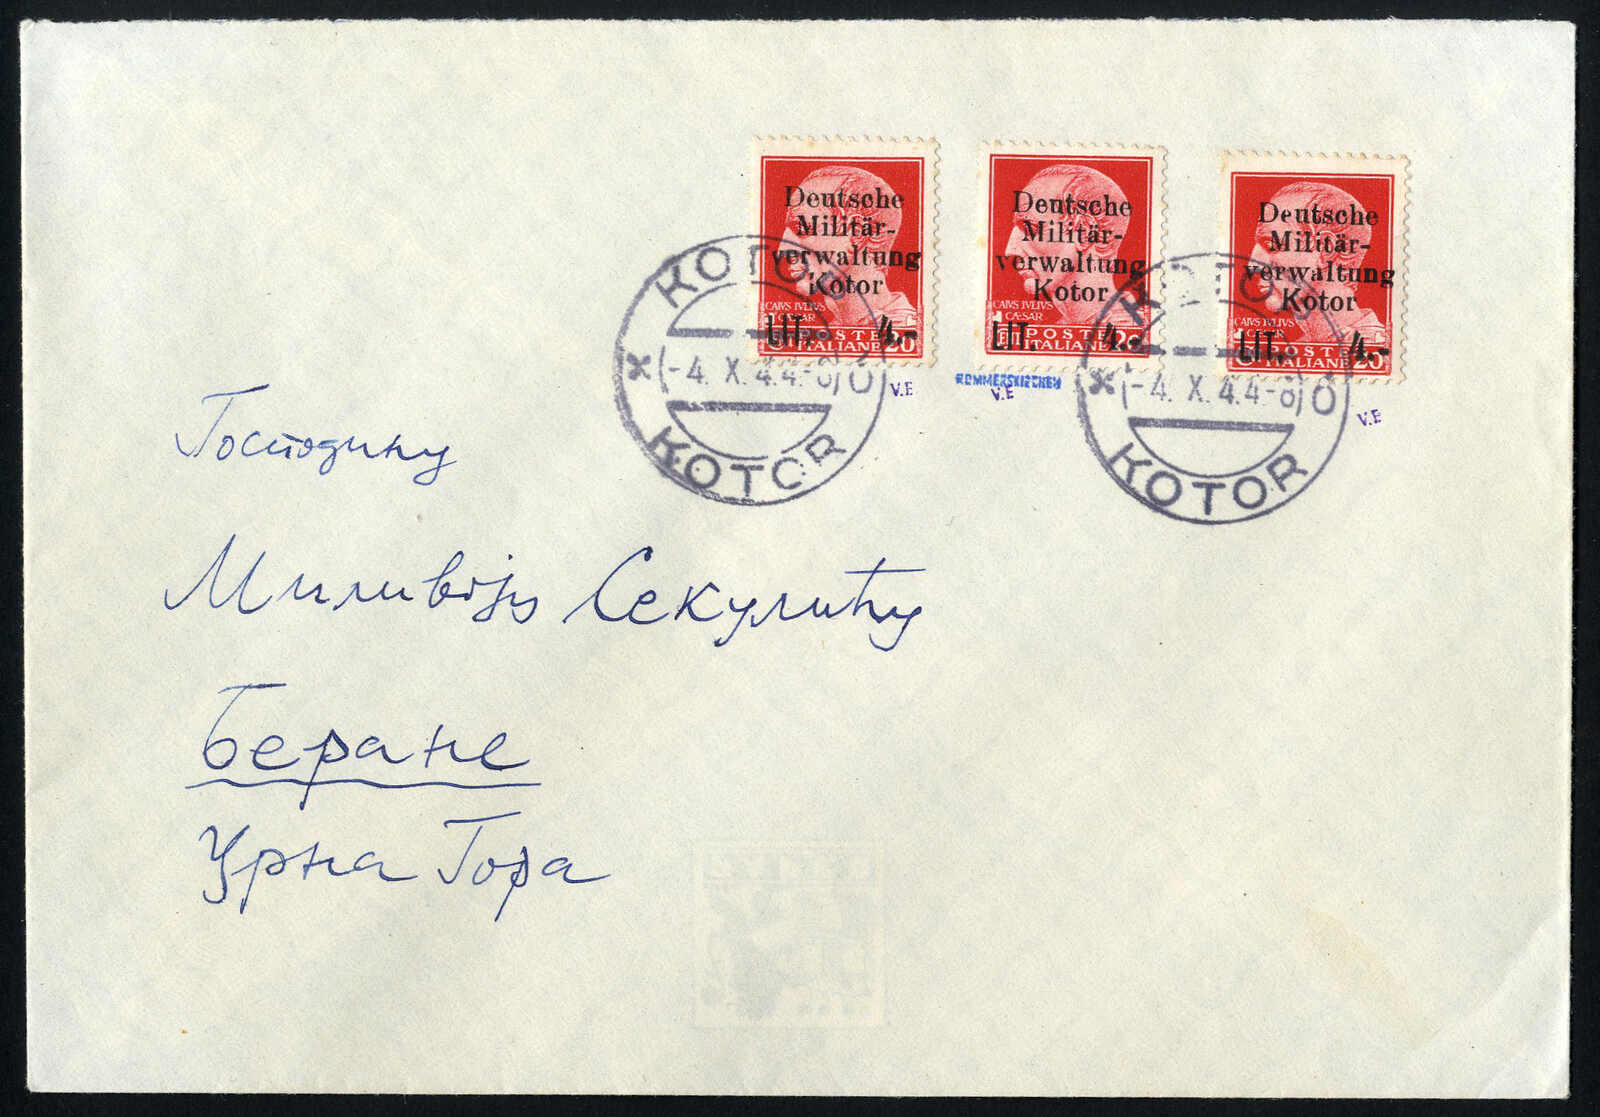 Deutsche
Militär-
verwaltung
Kotor
CAIVS IVLIVS
CÆSAR
LIT. 4.-
POSTE
ITALIANE 20
Deutsche
Militär-
verwaltung
Kotor
CAIVS IVLIVS
CÆSAR
LIT. 4.-
POSTE
ITALIANE 20
Deutsche
Militär-
verwaltung
Kotor
CAIVS IVLIVS
CÆSAR
LIT. 4.-
POSTE
ITALIANE 20
КОТОР
-4. X. 44-8
KOTOR
КОТОР
-4. X. 44-8
KOTOR
V.E
ROMMERSKIRCHEN
V.E
V.E
Господину
Миливоју Секулићу
Беране
Црна Гора